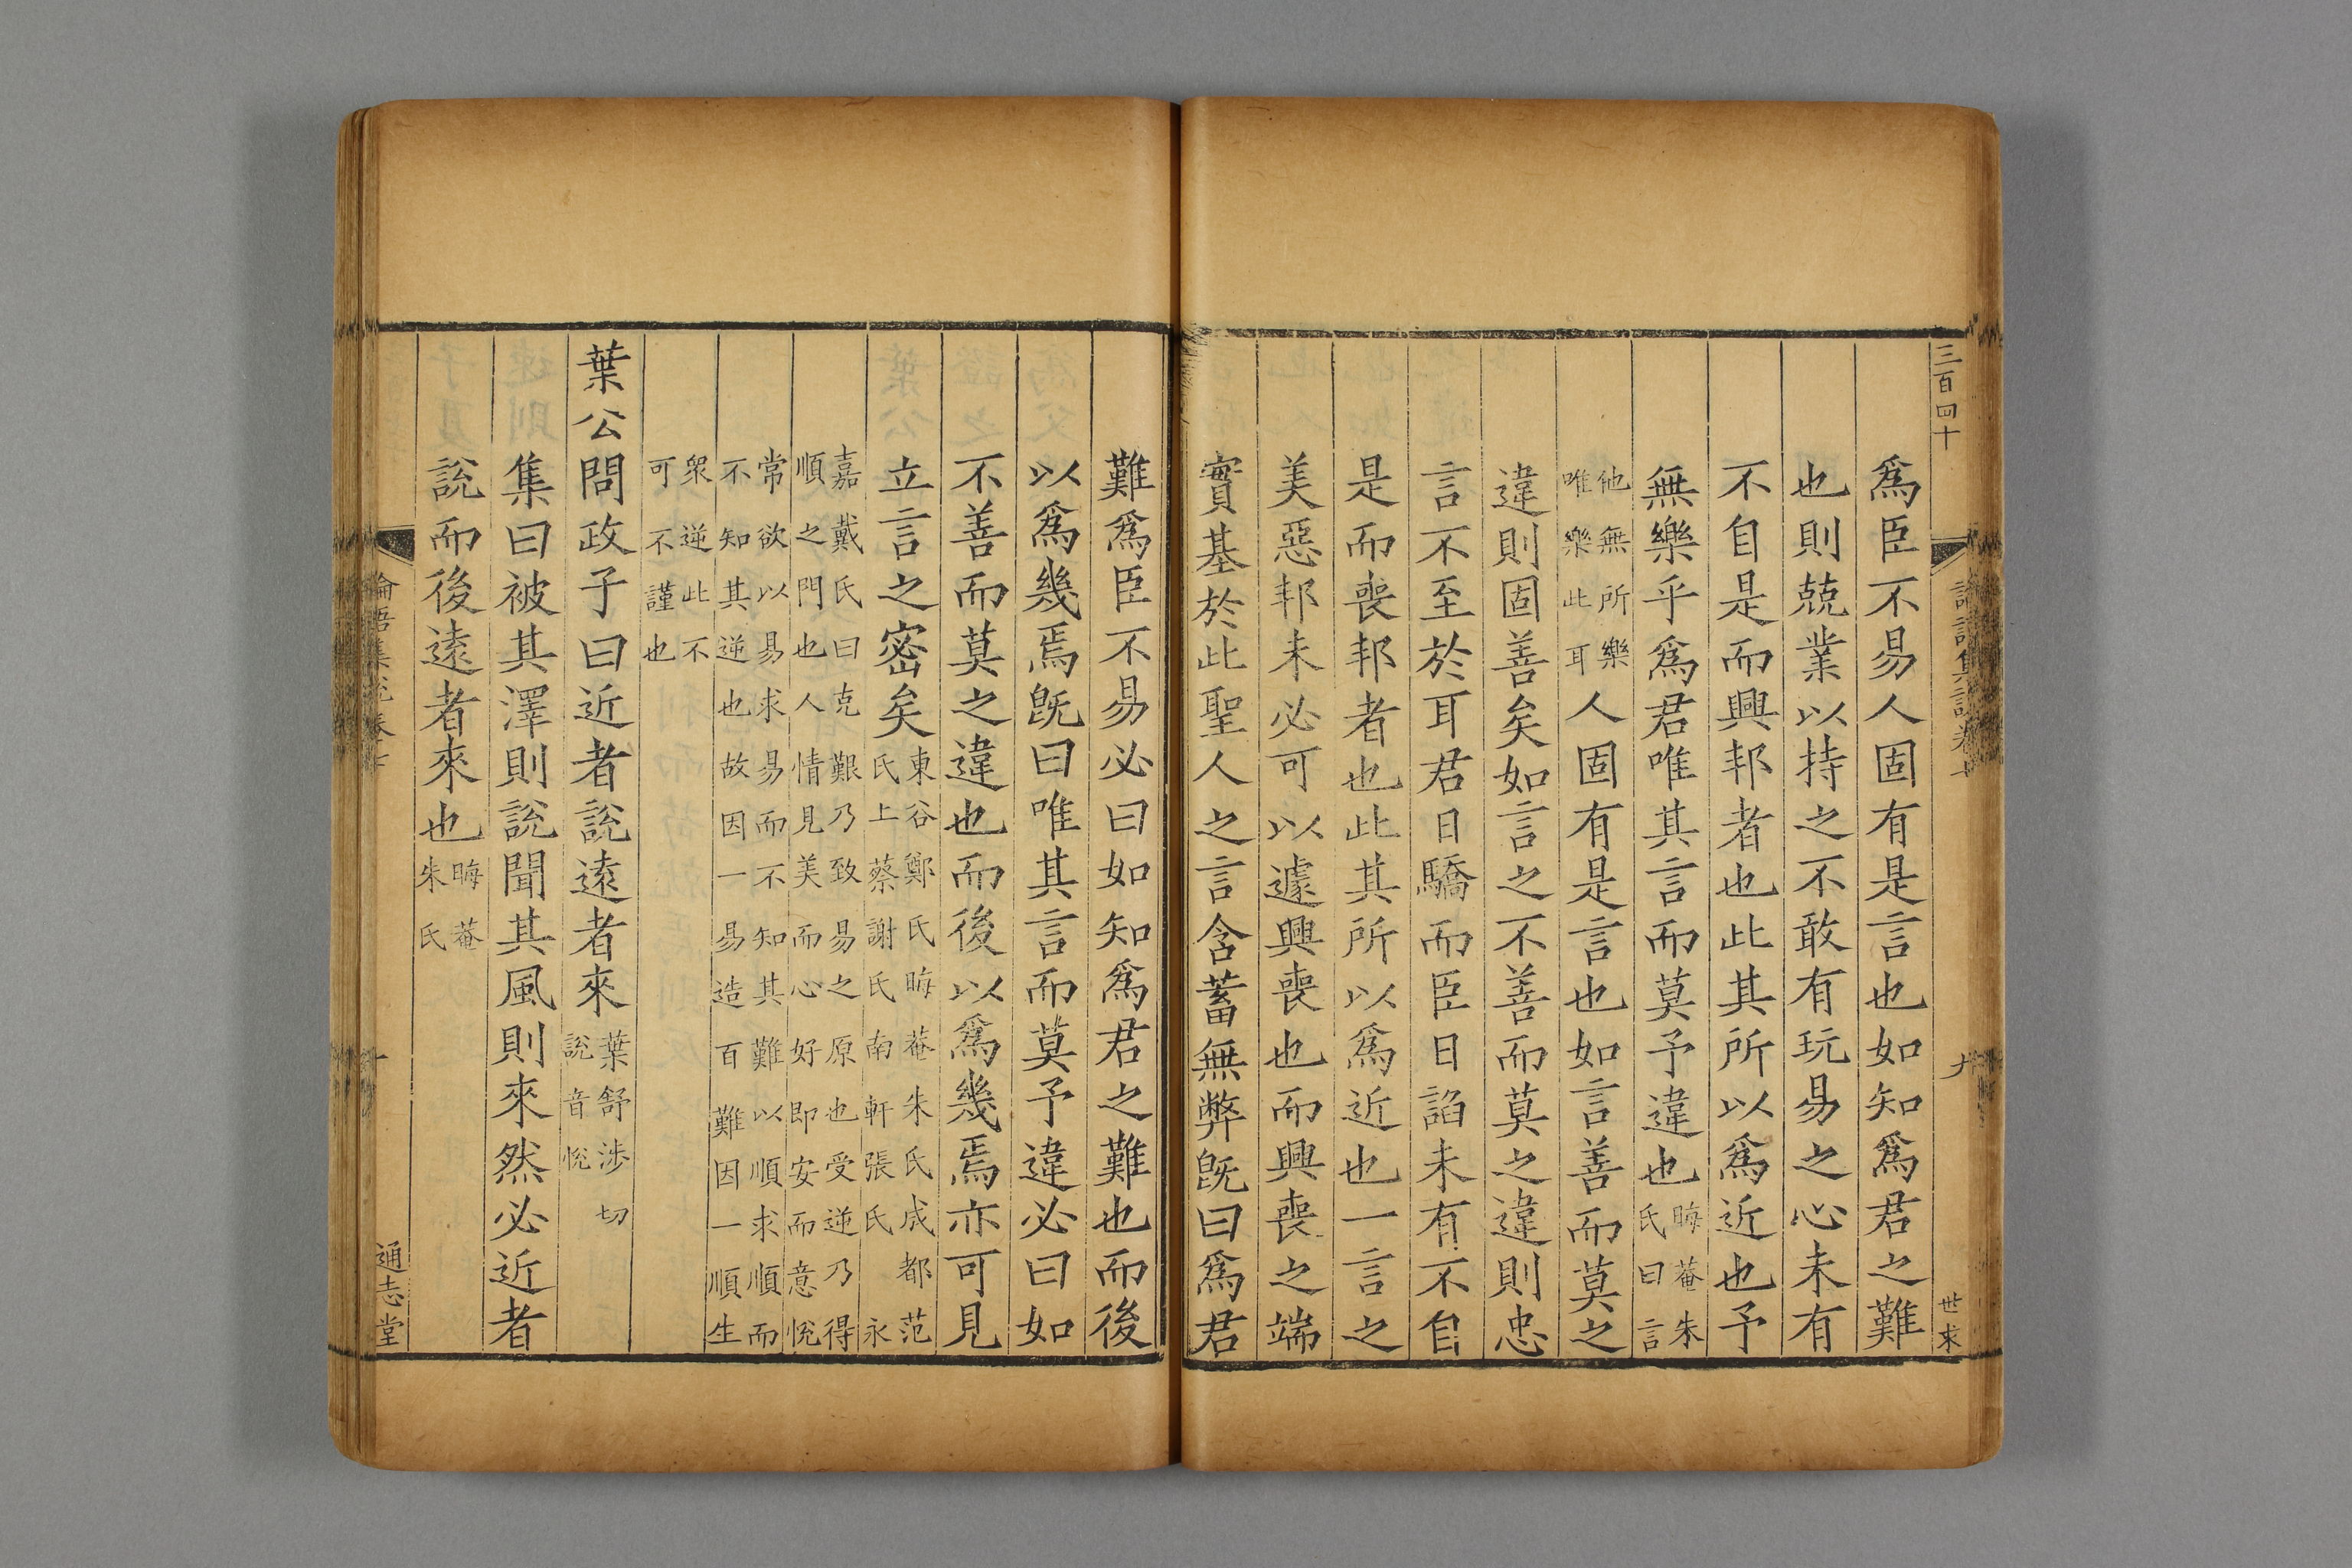 三百四十
論語集說卷七
九
世求
爲臣不易人固有是言也如知爲君之難
也則兢業以持之不敢有玩易之心未有
不自是而興邦者也此其所以爲近也予
無樂乎爲君唯其言而莫予違也晦菴朱氏曰言
他無所樂唯樂此耳人固有是言也如言善而莫之
違則固善矣如言之不善而莫之違則忠
言不至於耳君日驕而臣日諂未有不自
是而喪邦者也此其所以爲近也一言之
美惡邦未必可以遽興喪也而興喪之端
實基於此聖人之言含蓄無弊旣曰爲君
難爲臣不易必曰如知爲君之難也而後
以爲幾焉旣曰唯其言而莫予違必曰如
不善而莫之違也而後以爲幾焉亦可見
立言之密矣東谷鄭氏晦菴朱氏成都范氏上蔡謝氏南軒張氏 永
嘉戴氏曰克艱乃致易之原也受逆乃得順之門也人情見美而心好即安而意悅
常欲以易求易而不知其難以順求順而不知其逆也故因一易造百難因一順生
衆逆此不可不謹也
葉公問政子曰近者說遠者來葉舒涉切說音悅
集曰被其澤則說聞其風則來然必近者
說而後遠者來也晦菴朱氏
論語集說卷七
十
通志堂